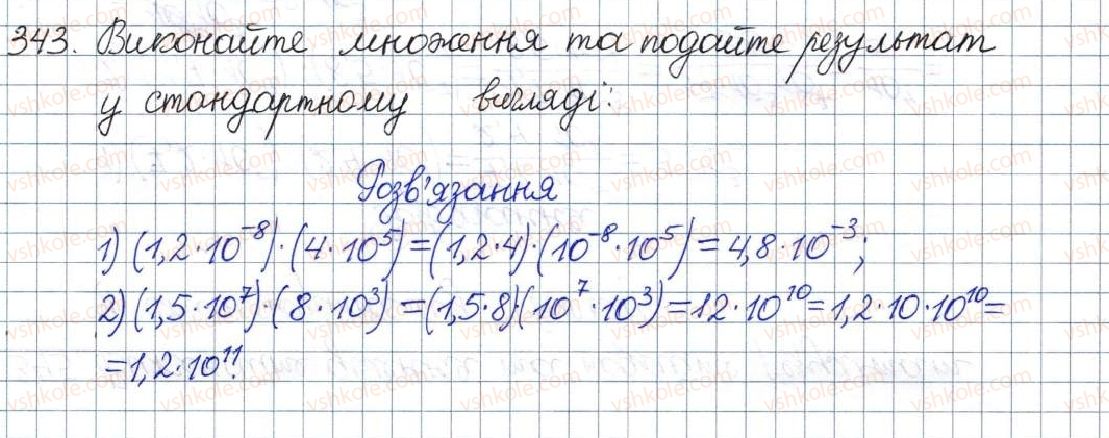 343. Виконайте множення та подайте результат
у стандартному вигляді:
Розв'язання
1) (1,2·10⁻⁸)·(4·10⁵)=(1,2·4)·(10⁻⁸·10⁵)=4,8·10⁻³;
2) (1,5·10⁷)·(8·10³)=(1,5·8)·(10⁷·10³)=12·10¹⁰=1,2·10·10¹⁰=
=1,2·10¹¹.